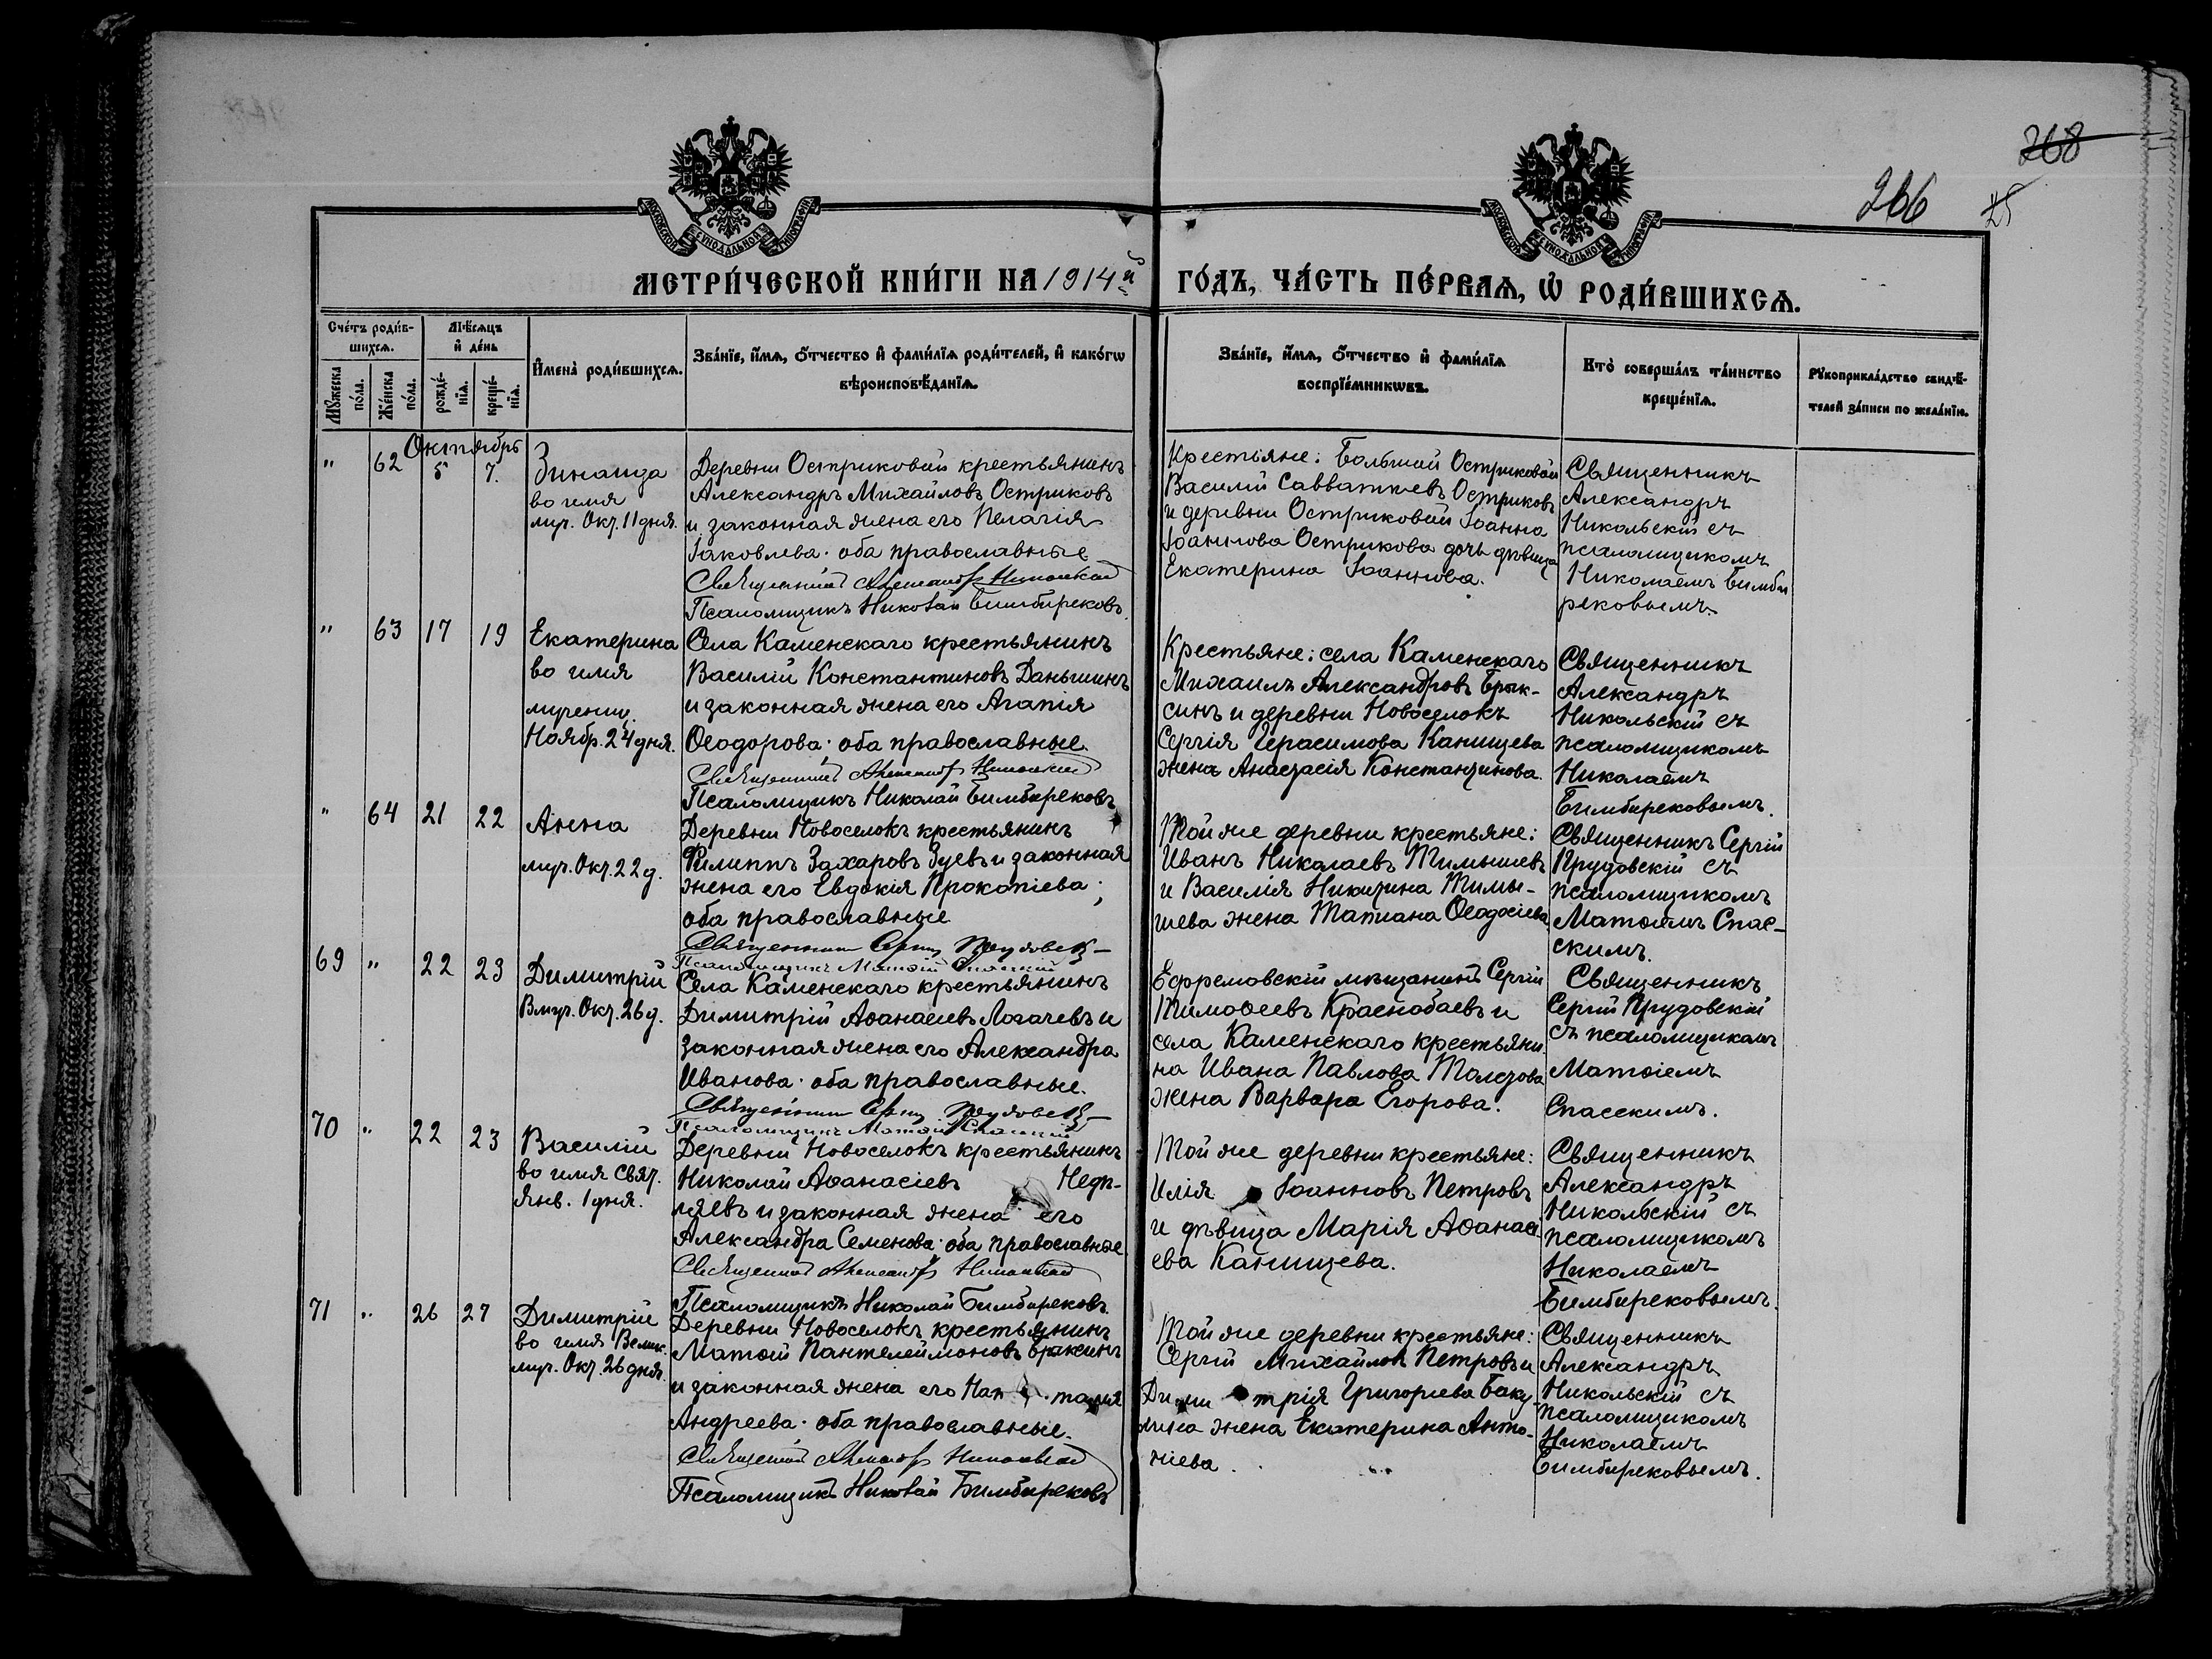 268
266
25
МОСКОВСКОЙ СѴНОДАЛЬНОЙ ТИПОГРАФІИ
МОСКОВСКОЙ СѴНОДАЛЬНОЙ ТИПОГРАФІИ
МЕТРИ́ЧЕСКОЙ КНИ́ГИ НА 1914й ГО́ДЪ, ЧА́СТЬ ПЕ́РВАѦ, Ѡ҆ РОДИ́ВШИХСѦ.
Сче́тъ роди́в-
шихсѧ.
Мѣ́сѧцъ
и҆ де́нь
Мꙋ́жеска
по́ла.
Же́нска
по́ла.
рожде́-
нїѧ.
креще́-
нїѧ.
И҆мена̀ роди́вшихсѧ.
Зва́нїе, и҆́мѧ, ѻ҆́тчество и҆ фами́лїѧ роди́телей, и҆ како́гѡ
вѣроисповѣ́данїѧ.
Зва́нїе, и҆́мѧ, ѻ҆́тчество и҆ фами́лїѧ
воспрїе́мникѡвъ.
Кто̀ соверша́лъ та́инство
креще́нїѧ.
Рꙋкоприкла́дство свидѣ́-
телей за́писи по жела́нїю.
Октябрь
" 62 5 7.
Зинаида
во имя
муч. Окт. 11 дня.
Деревни Остриковой крестьянинъ
Александръ Михайловъ Остриковъ
и законная жена его Пелагія
Іаковлева. оба православные
Священникъ Александръ Никольскій
Псаломщикъ Николай Бимбирековъ.
Крестьяне: Большой Остриковой
Василій Савватіевъ Остриковъ
и деревни Остриковой Іоанна
Іоаннова Острикова дочь дѣвица
Екатерина Іоаннова.
Священникъ
Александръ
Никольскій съ
псаломщикомъ
Николаемъ Бимби
рековымъ.
" 63 17 19
Екатерина
во имя
мучениц.
Ноябр. 24 дня.
Села Каменскаго крестьянинъ
Василій Константиновъ Даньшинъ
и законная жена его Агапія
Ѳеодорова. оба православные.
Священникъ Александръ Никольскій
Псаломщикъ Николай Бимбирековъ
Крестьяне: села Каменскаго
Михаилъ Александровъ Брык-
синъ и деревни Новоселокъ
Сергія Герасимова Канищева
жена Анастасія Константинова.
Священникъ
Александръ
Никольскій съ
псаломщикомъ
Николаемъ
Бимбирековымъ.
" 64 21 22
Анна
муч. Окт. 22 д.
Деревни Новоселокъ крестьянинъ
Филиппъ Захаровъ Зуевъ и законная
жена его Евдокія Прокопіева;
оба православные
Священникъ Сергій Прудовскій
Псаломщикъ Матѳій Спасскій
Той же деревни крестьяне:
Иванъ Николаевъ Тимышевъ
и Василія Никитина Тимы-
шева жена Татиана Ѳеодосіева
Священникъ Сергій
Прудовскій съ
псаломщикомъ
Матѳіемъ Спас-
скимъ.
69 " 22 23
Димитрій
Вмуч. Окт. 26 д.
Села Каменскаго крестьянинъ
Димитрій Аѳанасіевъ Логачевъ и
законная жена его Александра
Иванова. оба православные.
Священникъ Сергій Прудовскій
Псаломщикъ Матѳій Спасскій
Ефремовскій мѣщанинъ Сергій
Тимоѳеевъ Краснобаевъ и
села Каменскаго крестьяни
на Ивана Павлова Толстова
жена Варвара Егорова.
Священникъ
Сергій Прудовскій
съ псаломщикомъ
Матѳіемъ
Спасскимъ.
70 " 22 23
Василій
во имя Свят.
Янв. 1 дня.
Деревни Новоселокъ крестьянинъ
Николай Аѳанасіевъ Недп-
ляевъ и законная жена его
Александра Семенова. оба православные.
Священникъ Александръ Никольскій
Псаломщикъ Николай Бимбирековъ.
Той же деревни крестьяне:
Илія Іоанновъ Петровъ
и дѣвица Марія Аѳанасі
ева Канищева.
Священникъ
Александръ
Никольскій съ
псаломщикомъ
Николаемъ
Бимбирековымъ.
71 " 26 27
Димитрій
во имя Велик.
муч. Окт. 26 дня.
Деревни Новоселокъ крестьянинъ
Матѳій Пантелеймоновъ Браксинъ
и законная жена его
Андреева. оба православные.
Священникъ Александръ Никольскій
Псаломщикъ Николай Бимбирековъ
Той же деревни крестьяне:
Сергій Михайловъ Петровъ и
Дими трія Григоріева Баку
лина жена Екатерина Анто-
ніева.
Священникъ
Александръ
Никольскій съ
псаломщикомъ
Николаемъ
Бимбирековымъ.